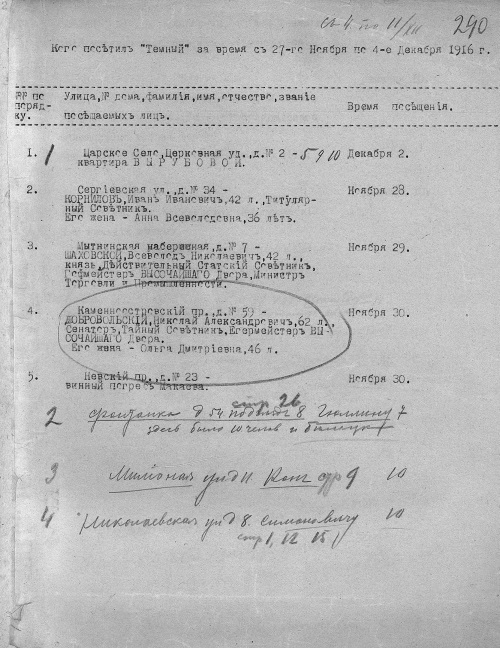 съ 4 по 11/XII 290
Кого посѣтилъ "Темный" за время съ 27-го Ноября по 4-е Декабря 1916 г.
№№ по Улица,№ дома,фамилія,имя,отчество,званіе
поряд- Время посѣщенія.
ку. посѣщаемыхъ лицъ.
1. 1 Царское Село,Церковная ул.,д.№ 2 - 5 9 10 Декабря 2.
квартира ВЫРУБОВОЙ.
2. Сергіевская ул.,д.№ 34 - Ноября 28.
КОРНИЛОВЪ,Иванъ Ивановичъ,42 л.,Титуляр-
ный Совѣтникъ.
Его жена - Анна Всеволодовна,36 лѣтъ.
3. Мытнинская набережная,д.№ 7 - Ноября 29.
ШАХОВСКОЙ,Всеволодъ Николаевичъ,42 л.,
князь,Дѣйствительный Статскій Совѣтникъ,
Гофмейстеръ ВЫСОЧАЙШАГО Двора,Министръ
Торговли и Промышленности.
4. Каменноостровскій пр.,д.№ 59 - Ноября 30.
ДОБРОВОЛЬСКІЙ,Николай Александровичъ,62 л.,
Сенаторъ,Тайный Совѣтникъ,Егермейстеръ ВЫ-
СОЧАЙШАГО Двора.
Его жена - Ольга Дмитріевна,46 л.
5. Невскій пр.,д.№ 23 - Ноября 30.
винный погребъ Макаева.
стр 26
2 Фонтанка д 54 8 7
здесь было 10 челов и
3 Милионая ул д 11 9 10
4 Николаевская ул д 8. Симановичу 10
стр 1, 12 15